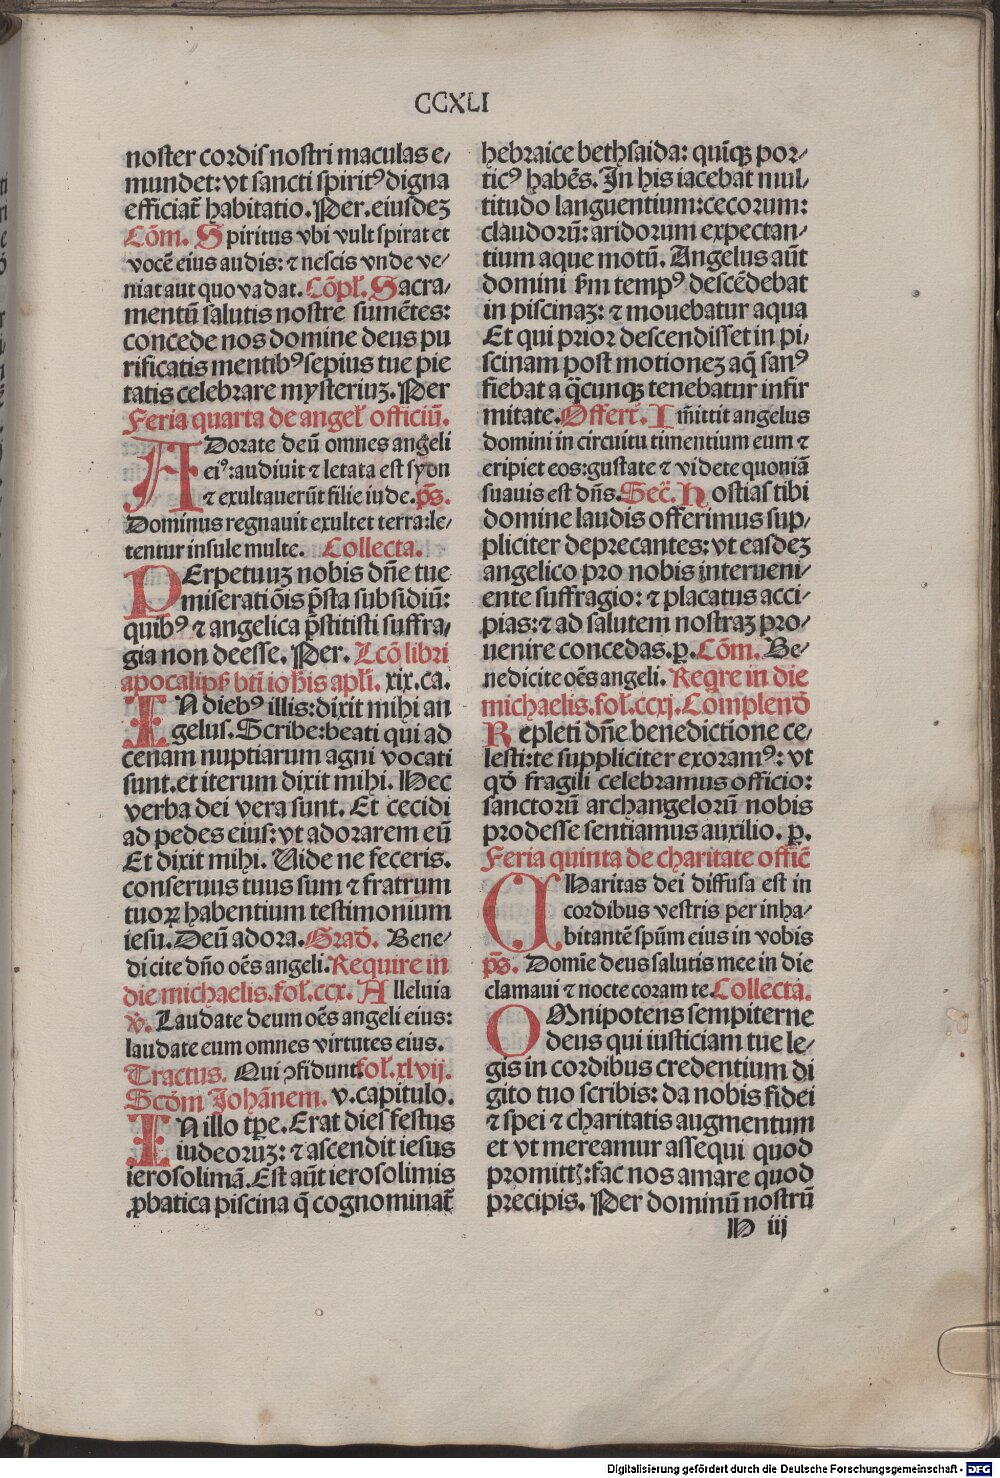 CCXLI
noster cordis nostri maculas e/
mundet: vt sancti spiritꝰ digna
efficiat᷑ habitatio. Per. eiusdeꝫ
Cōm. Spiritus vbi vult spirat et
vocē eius audis: ⁊ nescis vnde ve/
niat aut quo vadat. Cōpl̓. Sacra/
mentū salutis nostre sumētes:
concede nos domine deus pu
rificatis mentibꝰ sepius tue pie
tatis celebrare mysteriuꝫ. Per
Feria quarta de angel̓ officiū.
ADorate deū omnes angeli
eiꝰ: audiuit ⁊ letata est syon
⁊ exultauerūt filie iude. p̄s.
Dominus regnauit exultet terra: le/
tentur insule multe. Collecta.
PErpetuuꝫ nobis dn̄e tue
miseratiōis p̄sta subsidiū:
quibꝰ ⁊ angelica p̄stitisti suffra/
gia non deesse. Per. Lcō libri
apocalipẜ bt̄i ioh̄is apl̓i. xix. ca.
IN diebꝰ illis: dixit mihi an
gelus. Scribe: beati qui ad
cenam nuptiarum agni vocati
sunt. et iterum dixit mihi. Hec
verba dei vera sunt. Et cecidi
ad pedes eius: vt adorarem eū
Et dixit mihi. Vide ne feceris.
conseruus tuus sum ⁊ fratrum
tuoꝝ habentium testimonium
iesu. Deū adora. Grad̄. Bene/
dicite dn̄o oēs angeli. Require in
die michaelis. fol̓. ccx. Alleluia
v̄. Laudate deum oēs angeli eius:
laudate eum omnes virtutes eius.
Tractus. Qui ꝯfidunt fol̓. xlvij.
Scd̄m Johānem. v. capitulo.
IN illo tp̄e. Erat dies festus
iudeoruꝫ: ⁊ ascendit iesus
ierosolimā. Est aūt ierosolimis
ꝓbatica piscina q̄ cognominat᷑
hebraice bethsaida: quīqꝫ por/
ticꝰ habēs. In his iacebat mul/
titudo languentium: cecorum:
claudorū: aridorum expectan/
tium aque motū. Angelus aūt
domini ẜm tempꝰ descēdebat
in piscinaꝫ: ⁊ mouebatur aqua
Et qui prior descendisset in pi/
scinam post motioneꝫ aq̄ sanꝰ
fiebat a q̄cunqꝫ tenebatur infir
mitate. Offert᷑. Im̄ittit angelus
domini in circuitu timentium eum ⁊
eripiet eos: gustate ⁊ videte quoniā
suauis est dn̄s. Sec̄. Hostias tibi
domine laudis offerimus sup/
pliciter deprecantes: vt easdeꝫ
angelico pro nobis interueni/
ente suffragio: ⁊ placatus acci/
pias: ⁊ ad salutem nostraꝫ pro/
uenire concedas. p̱. Cōm. Be/
nedicite oēs angeli. Reqr̄e in die
michaelis. fol̓. ccxj. Complend̄
Repleti dn̄e benedictione ce/
lesti: te suppliciter exoramꝰ: vt
qd̄ fragili celebramus officio:
sanctorū archangelorū nobis
prodesse sentiamus auxilio. p̱.
Feria quinta de charitate offic̄
CHaritas dei diffusa est in
cordibus vestris per inha/
bitantē spūm eius in vobis
p̄s. Domīe deus salutis mee in die
clamaui ⁊ nocte coram te. Collecta.
OMnipotens sempiterne
deus qui iusticiam tue le/
gis in cordibus credentium di
gito tuo scribis: da nobis fidei
⁊ spei ⁊ charitatis augmentum
et vt mereamur assequi quod
promittꝭ: fac nos amare quod
precipis. Per dominū nostrū
H iij
Digitalisierung gefördert durch die Deutsche Forschungsgemeinschaft - DFG